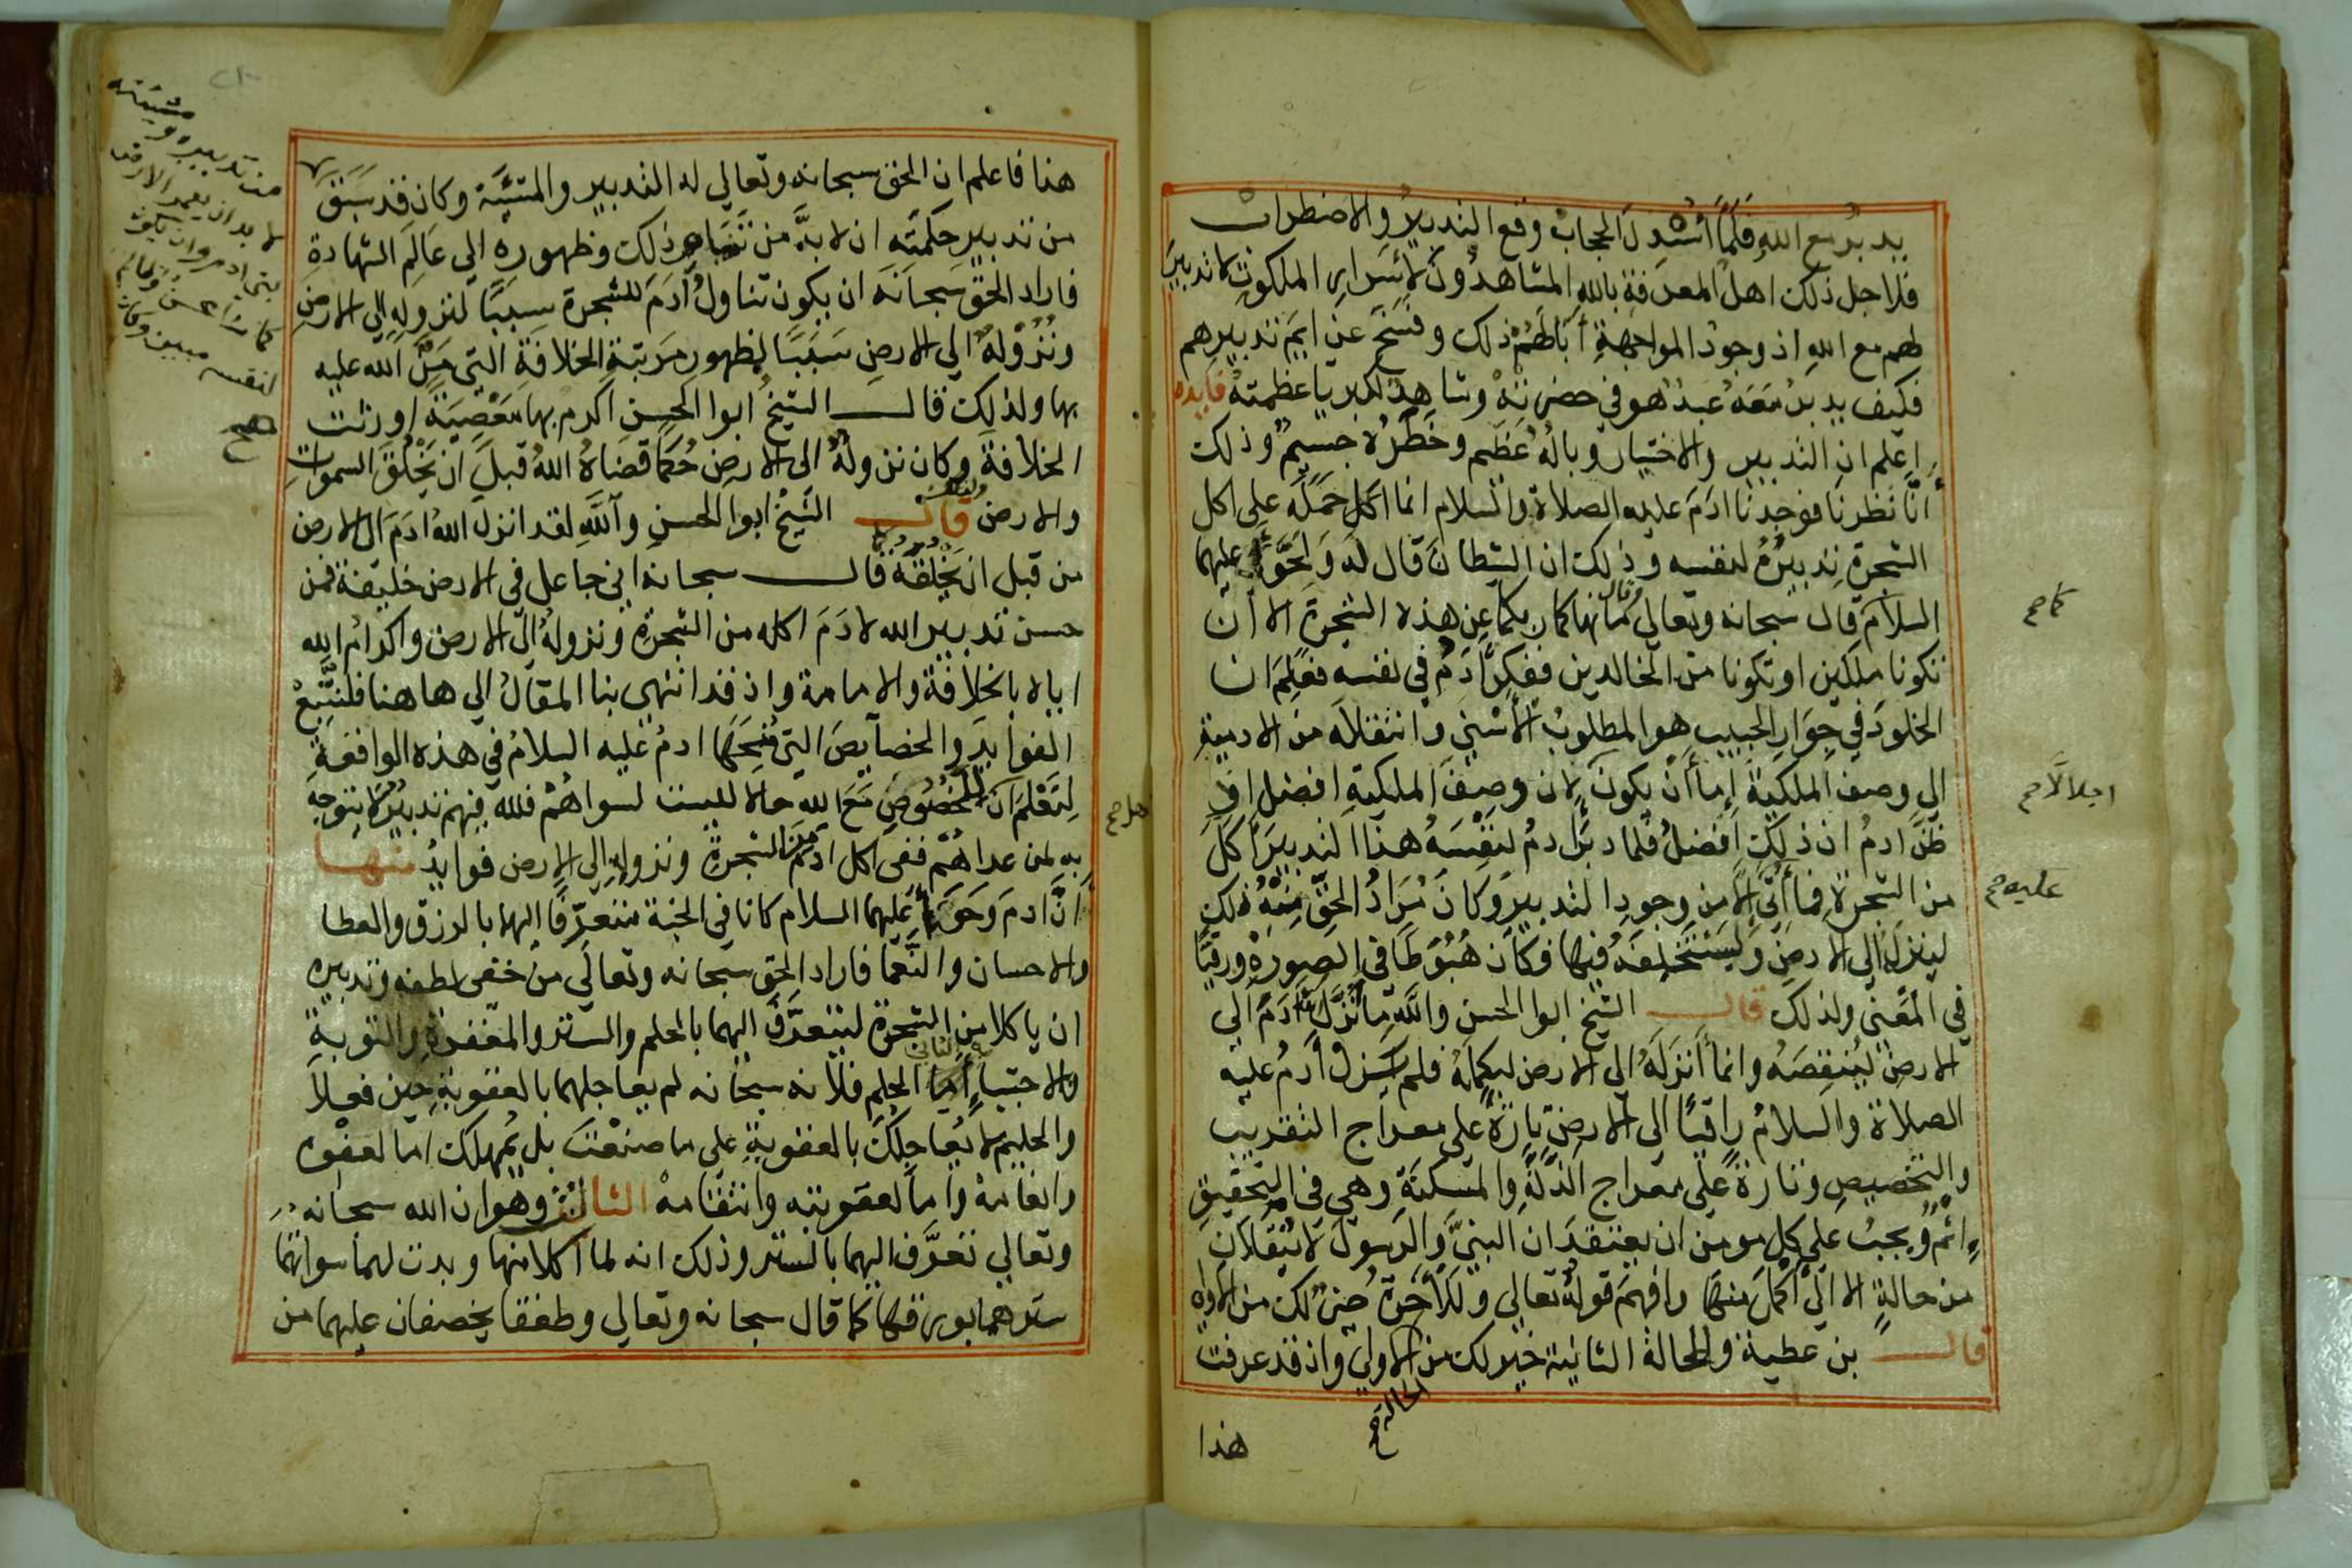 يدبر مع الله فلما أسدل الحجاب وقع التدبير والاضطراب
فلاجل ذلك اهل المعرفة بالله المشاهدون لاسرار الملكوت لا تدبير
لهم مع الله اذ وجود المواجهة أبا لهم ذلك وفسخ عزايم تدبيرهم
فكيف يدبر معه عبد هو في حضرته وشاهد لكبريا عظمته فايده
اعلم ان التدبير والاختيار وباله عظيم وخطره جسيم وذلك
أنا نظرنا فوجدنا ادم عليه الصلاة والسلام انما اكل حمله على اكل
الشجرة تدبيره لنفسه وذلك ان الشيطان قال له ولحوا عليهما
السلام قال سبحانه وتعالى وقال ما نهاكما ربكما عن هذه الشجرة الا أن
تكونا ملكين او تكونا من الخالدين ففكر آدم في نفسه فعلم ان
الخلود في جوار الحبيب هو المطلوب الأسنى وانتقاله من الادمية
الى وصف الملكية إما أن يكون لان وصف الملكية افضل او
ظن ادم ان ذلك افضل فلما دبر ادم لنفسه هذا التدبير اكل
من الشجرة فما أتي إلا من وجود التدبير وكان مراد الحق منه ذلك
لينزله الى الارض ويستخلفه فيها فكان هبوطا في الصورة ورقيا
في المعنى ولذلك قال الشيخ ابوا الحسن والله ما أنزل الله آدم الى
الارض لينقصه وانما أنزله الى الارض ليكمله فلم يزل آدم عليه
الصلاة والسلام راقيا الى الارض تارة على معراج التقريب
والتخصيص وتارة على معراج الذلة والمسكنة وهي في التحقيق
اتم ويجب على كل مومن ان يعتقد ان النبي والرسول لا ينتقلان
من حالة الا الى اكمل منها وافهم قوله تعالى وللآخرة خير لك من الاولى
قال بن عطية والحالة الثانية خير لك من الاولى واذ قد عرفت
هذا
كما صح
اجلالا صح
عليه صح
الحالة صح
هذا فاعلم ان الحق سبحانه وتعالى له التدبير والمشيئة وكان قد سبق
من تدبير حكمته ان لا بد من ذلك وظهوره الى عالم الشهادة
فاراد الحق سبحانه ان يكون تناول آدم للشجرة سببا لنزوله الى الارض
ونزوله الى الارض سببا لظهور مرتبة الخلافة التي من الله عليه
بها ولذلك قال الشيخ ابوا الحسن اكرم بها معصية اورثت
الخلافة وكان نزوله الى الارض حكما قضاه الله قبل ان يخلق السموات
والارض ولذلك قال الشيخ ابوا الحسن والله لقد انزل الله ادم الى الارض
من قبل ان يخلقه قال سبحانه اني جاعل في الارض خليفة فمن
حسن تدبير الله لادم اكله من الشجرة ونزوله الى الارض واكرام الله
اياه بالخلافة والامامة واذ قد انتهى بنا المقال الى هاهنا فلنتبع
الفوايد والخصايص التي منحها ادم عليه السلام في هذه الواقعة
لتعلم ان للخصوص مع الله حالا ليست لسواهم فلله فيهم تدبير لا يتوجه
به لمن عداهم ففي اكل ادم من الشجرة ونزوله الى الارض فوايد منها
أن ادم وحوا عليهما السلام كانا في الجنة متعرفا اليهما بالرزق والعطا
والاحسان والنعما فاراد الحق سبحانه وتعالى من خفي لطفه وتدبيره
ان ياكلا من الشجرة ليتعرف اليهما بالحلم والستر والمغفرة والتوبة
والاجتبا أما الحلم فلانه سبحانه لم يعاجلهما بالعقوبة حين فعلا
والحليم لا يعاجلك بالعقوبة على ما صنعت بل يمهلك اما لعفوه
وانعامه واما لعقوبته وانتقامه الثالث وهو ان الله سبحانه
وتعالى تعرف اليهما بالستر وذلك انه لما اكلا منها وبدت لهما سواتهما
سترهما بورقها كما قال سبحانه وتعالى وطفقا يخصفان عليهما من
من تدبيره ومشيئته